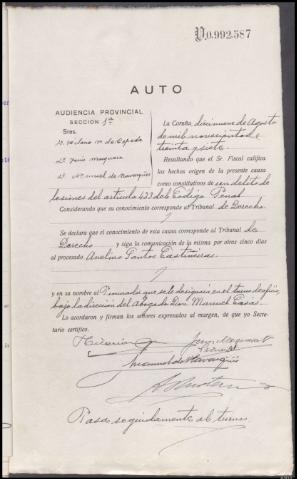 V0.992.587
AUTO
AUDIENCIA PROVINCIAL
SECCION 1ª
Sres.
D. Hilario N. de Cepeda
D. Jesús Marquina
D. Manuel de Navarqüés
La Coruña, diecinueve de Agosto
de mil novecientos
treinta y siete
Resultando que el Sr. Fiscal califica
los hechos origen de la presente causa
como constitutivos de un delito de
lesiones del artículo 423 del Código Penal
Considerando que su conocimiento corresponde al Tribunal de Derecho
Se declara que el conocimiento de esta causa corresponde al Tribunal de
Derecho y siga la comunicación de la misma por otros cinco días
al procesado Avelino Santos Castiñeiras
y en su nombre al Procurador que se le designe en el turno de oficio
bajo la dirección del Abogado Don Manuel Casás
Lo acordaron y firman los señores expresados al margen, de que yo Secretario
certifico.
Hilario
Manuel de Navarqüés
Pasa seguidamente al turno